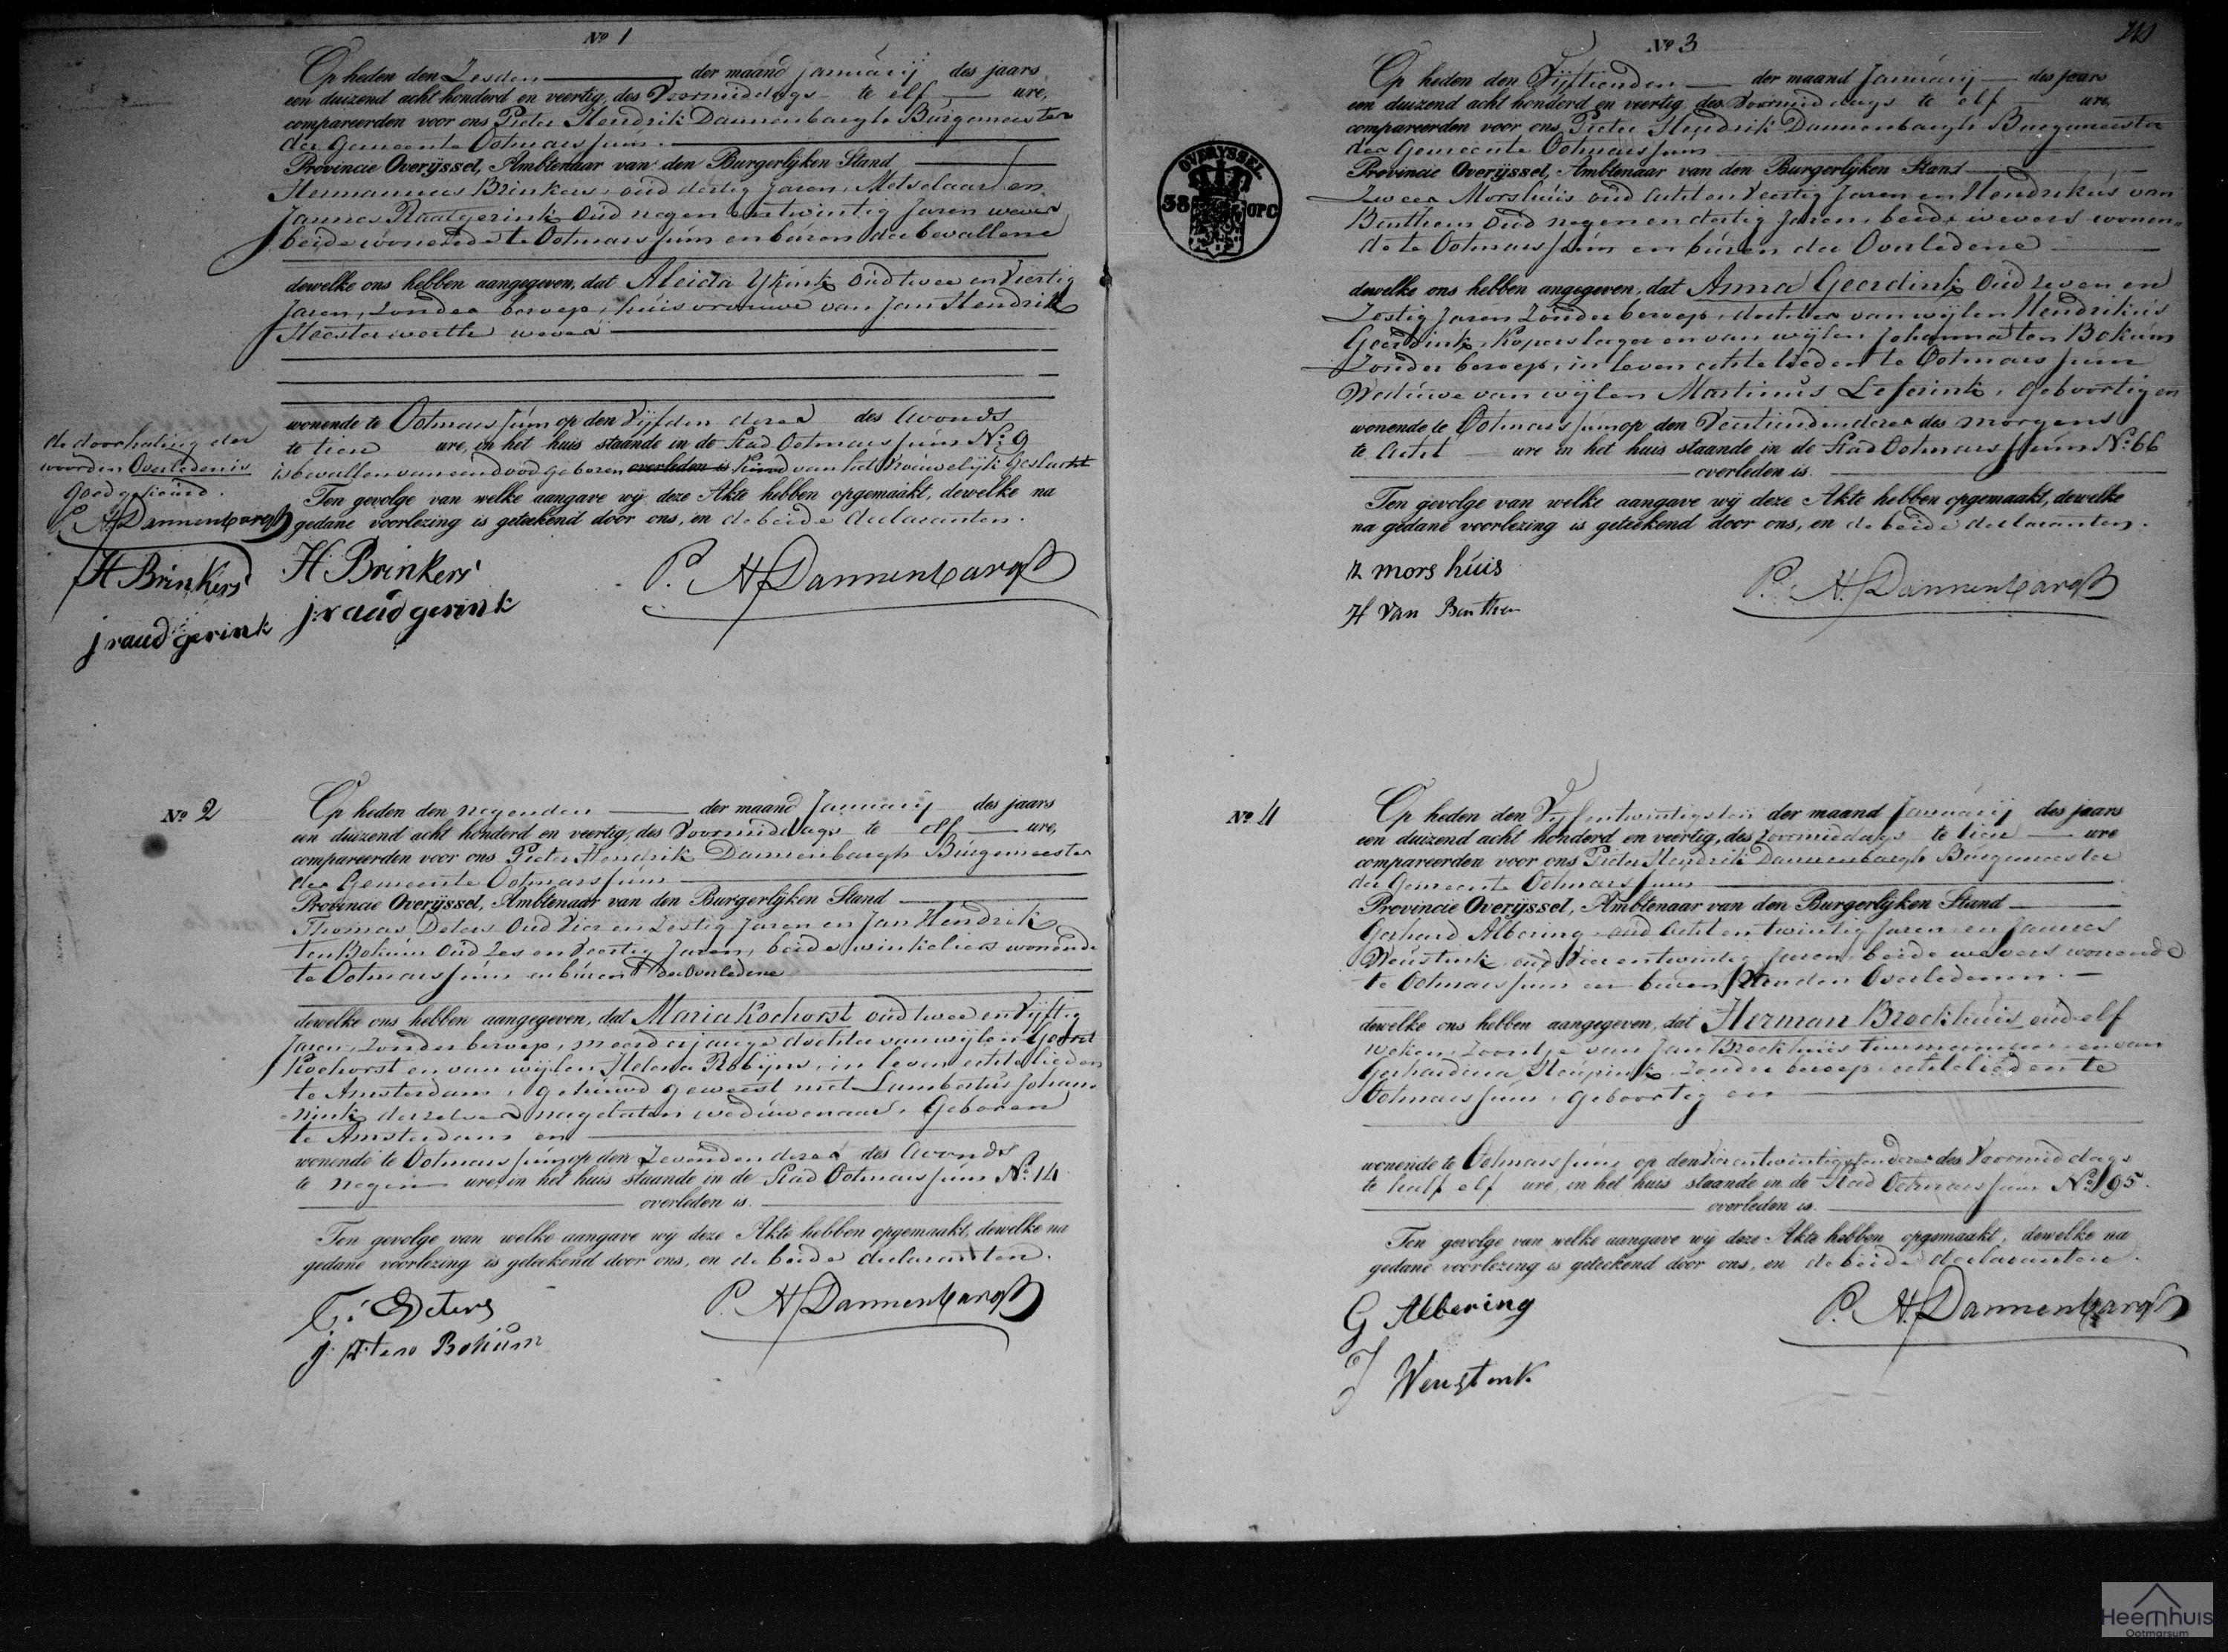 Nº 1
Op heden den Zesden der maand Januarij des jaars
een duizend acht honderd en veertig, des Voormiddags te elf ure,
compareerden voor ons Pieter Hendrik Dannenbargh Burgemeester
der Gemeente Ootmarssum
Provincie Overijssel, Ambtenaar van den Burgerlijken Stand
Hermannus Brinkers, oud dertig Jaren, Metselaar en
Jannes Raatgerink oud negen en twintig Jaren wever
beide wonende te Ootmarssum en buren der bevallene
dewelke ons hebben aangegeven, dat Aleida Ykink oud twee en Veertig
Jaren, zonder beroep, huisvrouwe van Jan Hendrik
wever
wonende te Ootmarssum op den Vijfden dezer des avonds
te tien ure, in het huis staande in de Stad Ootmarssum Nº 9
is bevallen van een dood geboren overleden is Kind van het Vrouwelijk Geslacht
Ten gevolge van welke aangave wij deze Akte hebben opgemaakt, dewelke na
gedane voorlezing is geteekend door ons, en de beide declaranten.
de doorhaling der
woorden Overleden is
Goedgekeurd.
P. H. Dannenbargh
H Brinkers
j raudgerink
H Brinkers
j raudgerink
P. H. Dannenbargh
Nº 2
Op heden den negenden der maand Januarij des jaars
een duizend acht honderd en veertig, des Voormiddags te elf ure,
compareerden voor ons Pieter Hendrik Dannenbargh Burgemeester
der Gemeente Ootmarssum
Provincie Overijssel, Ambtenaar van den Burgerlijken Stand
Thomas Deters Oud Vier en Zestig Jaren en Jan Hendrik
ten Bokum Oud Zes en Veertig Jaren, beide winkeliers wonende
te Ootmarssum en buren der Overledene
dewelke ons hebben aangegeven, dat Maria Kochorst oud twee en Vijftig
Jaren, zonder beroep, meerderjarige dochter van wijlen Geert
Kochorst en van wijlen Helena Robijns, in leven echtelieden
te Amsterdam, gehuwd geweest met Lambertus Johan
nink deszelver nagelaten weduwenaar, Geboren
te Amsterdam en
wonende te Ootmarssum op den Zevenden dezer des avonds
te negen ure, in het huis staande in de Stad Ootmarssum Nº 14
overleden is.
Ten gevolge van welke aangave wij deze Akte hebben opgemaakt, dewelke na
gedane voorlezing is geteekend door ons, en de beide declaranten.
T. Deters
j. H ten Bokum
P. H. Dannenbargh
Nº 3
Op heden den Vijftienden der maand Januarij des jaars
een duizend acht honderd en veertig, des Voormiddags te elf ure,
compareerden voor ons Pieter Hendrik Dannenbargh Burgemeester
der Gemeente Ootmarssum
Provincie Overijssel, Ambtenaar van den Burgerlijken Stand
Zweer Morshuis oud acht en Veertig Jaren en Hendrikus van
Benthem Oud negen en dertig Jaren, beide wevers wonen=
de te Ootmarssum en buren der Overledene
dewelke ons hebben angegeven, dat Anna Geerdink Oud zeven en
Zestig Jaren Zonder beroep, dochter van wijlen Hendrikus
Geerdink, Koperslager en van wijlen Johanna ten Bokum
Zonder beroep, in leven echtelieden te Ootmarssum
Weduwe van wijlen Martinus Leferink, Geboortig en
wonende te Ootmarssum op den Veertienden dezer des morgens
te Acht ure in het huis staande in de Stad Ootmarssum Nº 66
overleden is.
Ten gevolge van welke aangave wij deze Akte hebben opgemaakt, dewelke
na gedane voorlezing is geteekend door ons, en de beide declaranten.
Z mors huis
H van Benthem
P. H. Dannenbargh
OVERYSSEL
38 OPC
Nº 4
Op heden den Vijfentwintigsten der maand Januarij des jaars
een duizend acht honderd en veertig, des Voormiddags te tien ure
compareerden voor ons Pieter Hendrik Dannenbargh Burgemeester
der Gemeente Ootmarssum
Provincie Overijssel, Ambtenaar van den Burgerlijken Stand
Gerhard Albering oud Acht en twintig Jaren en Jannes
Weustink, oud Vier en twintig Jaren, beide wevers wonende
te Ootmarssum en buren van den Overledenen.
dewelke ons hebben aangegeven, dat Herman Brockhuis oud elf
weken, Zoontje van Jan Brockhuis timmerman, en van
Gerhardina zonder beroep echtelieden te
Ootmarssum, geboortig en
wonende te Ootmarssum op den Vier en twintigsten dezer des Voormiddags
te half elf ure, in het huis staande in de Stad Ootmarssum Nº 195.
overleden is.
Ten gevolge van welke aangave wij deze Akte hebben opgemaakt, dewelke na
gedane voorlezing is geteekend door ons, en de beide declaranten.
G Albering
J Weustink
P. H. Dannenbargh
Heemhuis
Ootmarsum